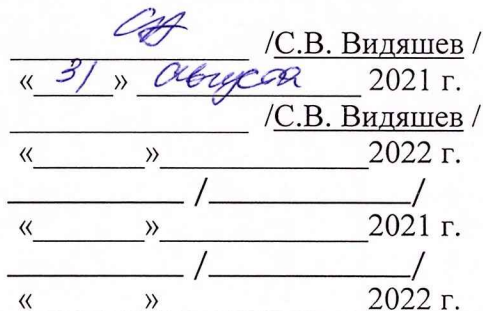 /С.В. Видяшев /
«31» августа 2021 г.
/С.В. Видяшев /
«______»______________2022 г.
____________ /______________/
«______»______________2021 г.
____________ /______________/
«______»______________2022 г.